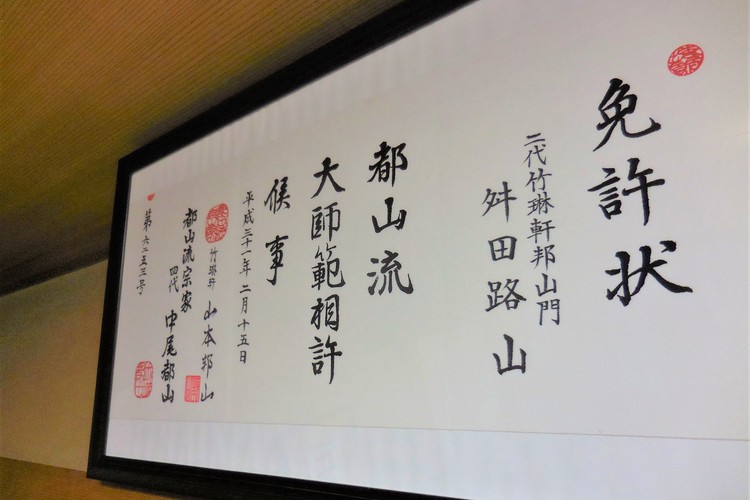 免許状
二代竹琳軒邦山門
舛田路山
都山流
大師範相許
候事
平成三十一年二月十五日
竹琳軒 山本邦山
都山流宗家
四代 中尾都山
第六二五三号